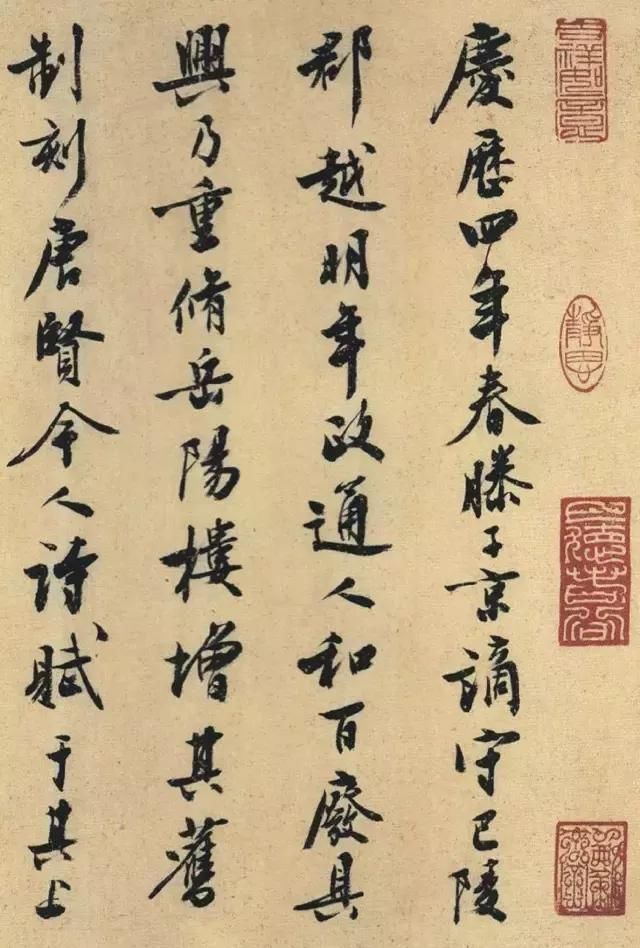 慶歷四年春滕子京謫守巴陵
郡越明年政通人和百廢具
興乃重脩岳陽樓增其舊
制刻唐賢今人詩賦于其上